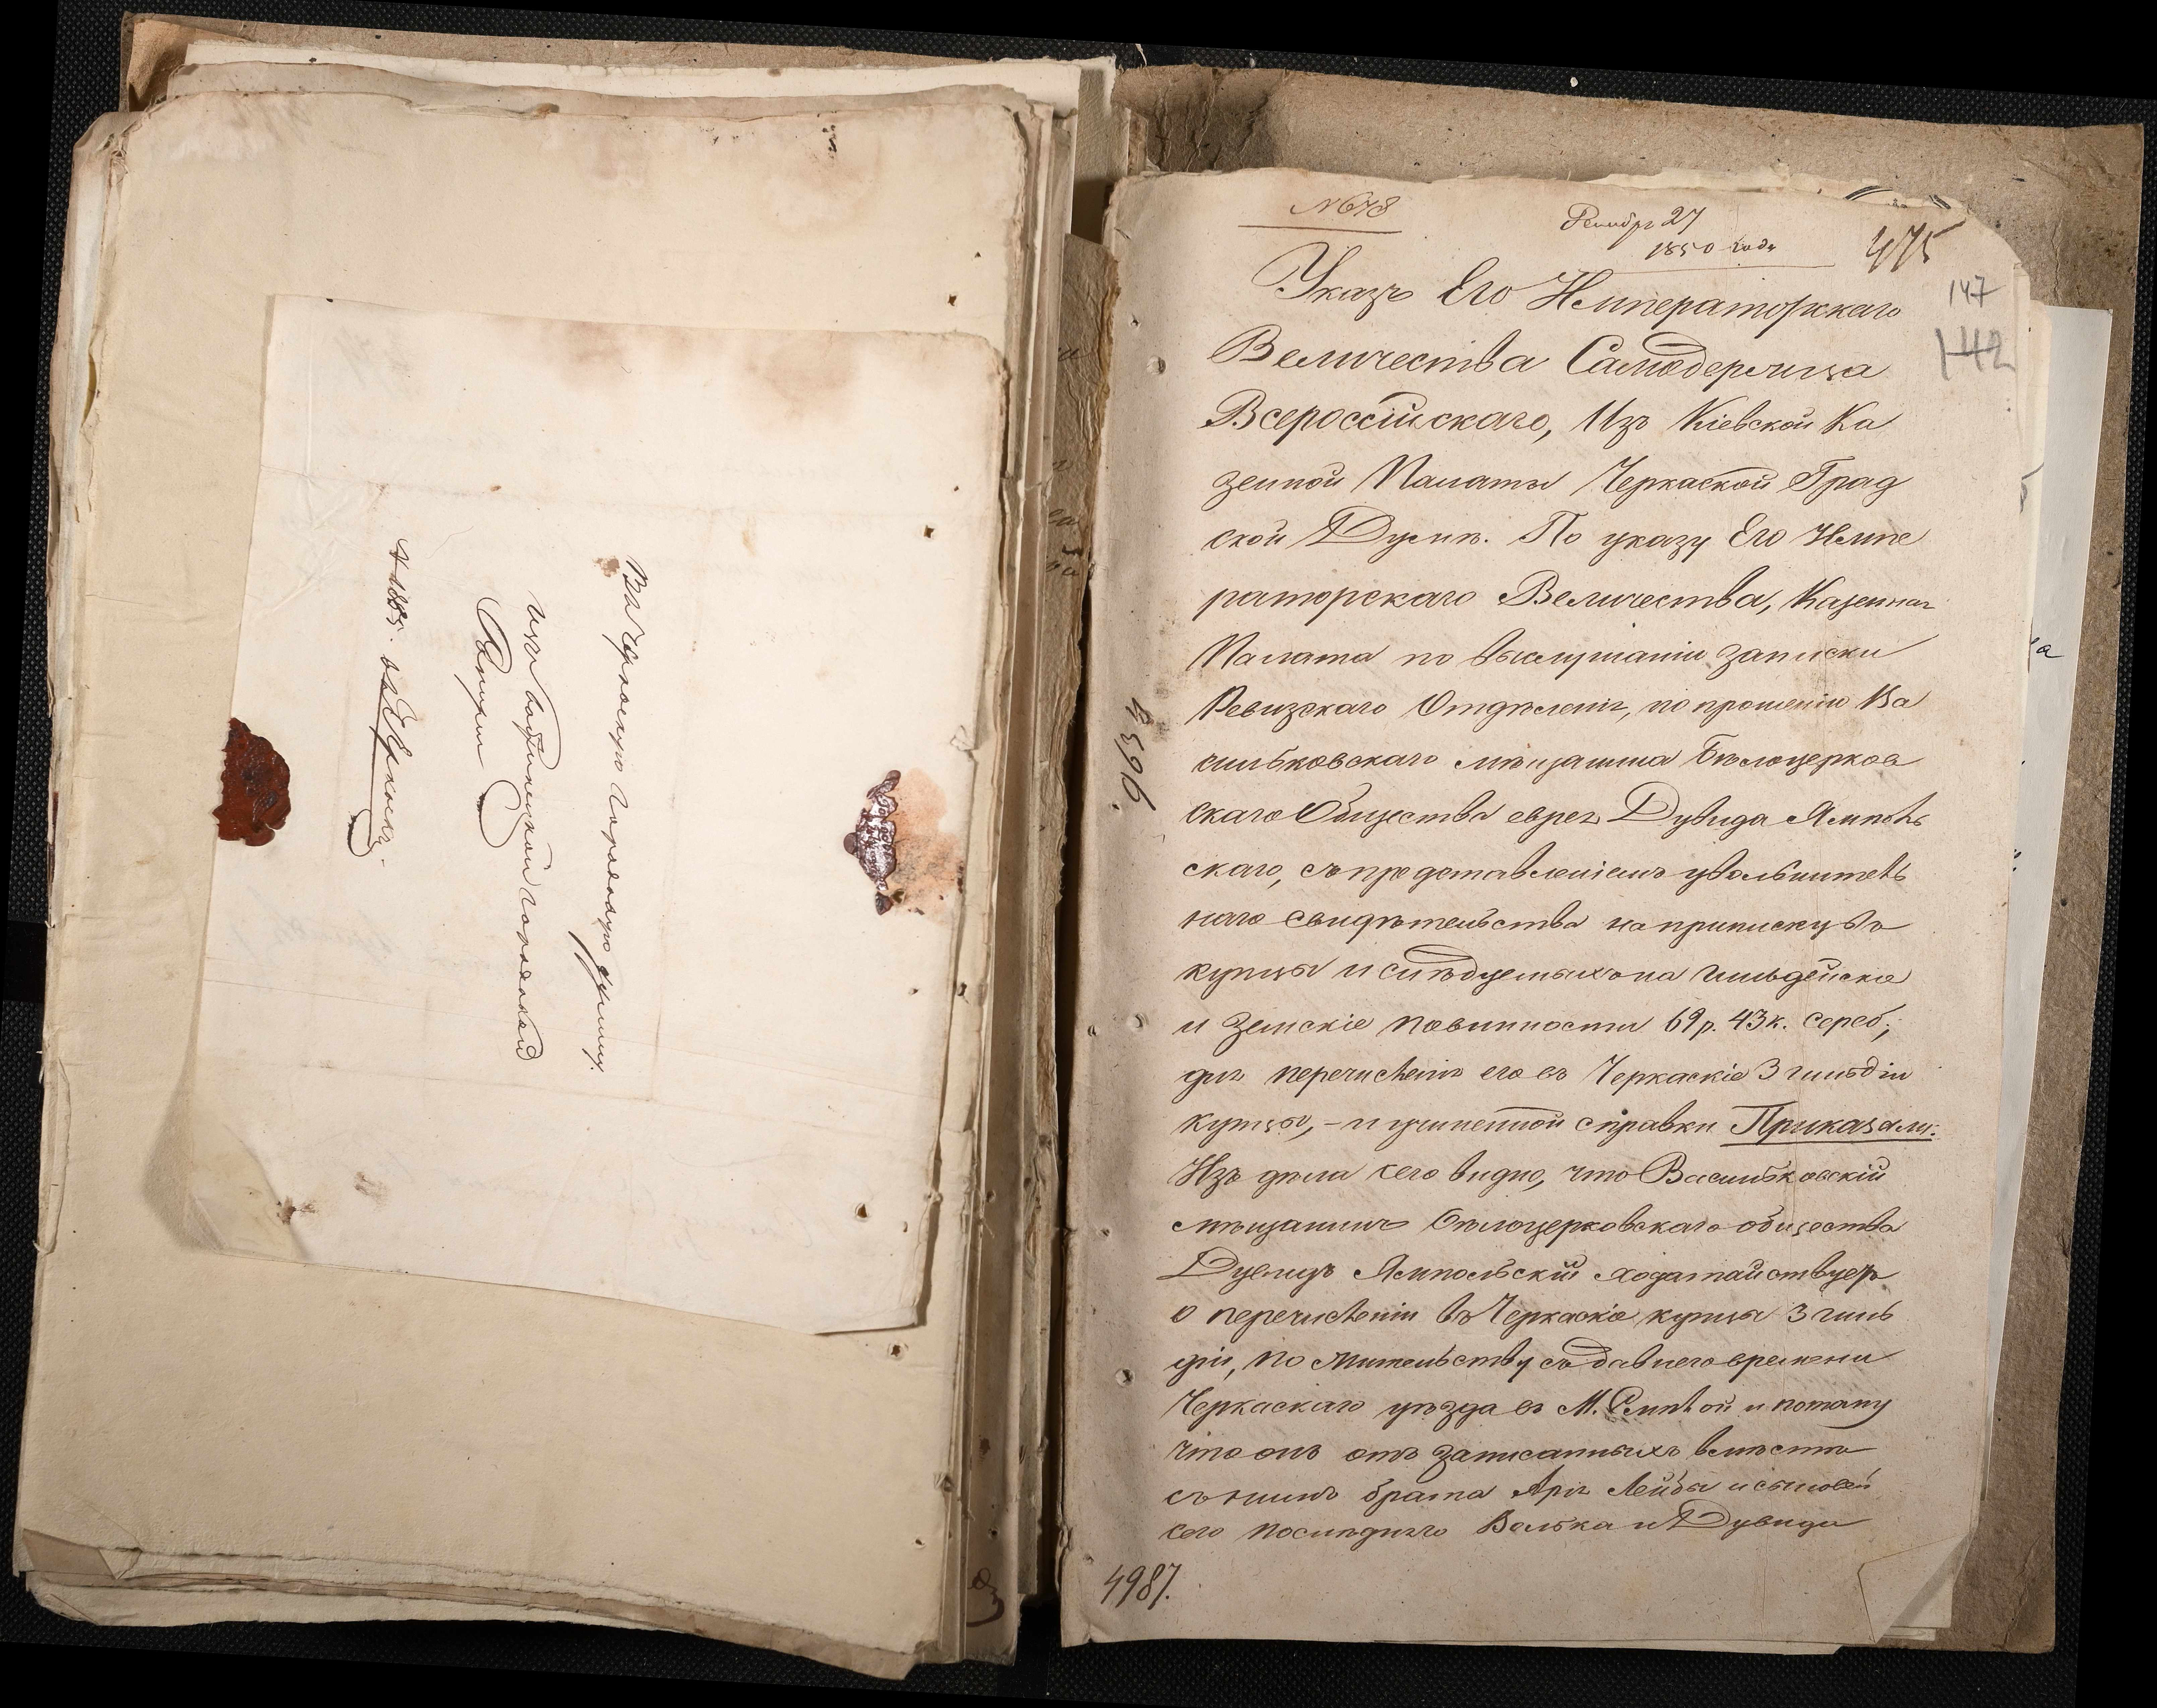 Въ Черкаскую городовую думу.
изъ городовой
Ратуши
въ Черкасы.
№ 678
27
1850 года
475
147
142
Указъ Его Императорскаго
Величества Самодержца
Всероссійскаго, Изъ Кіевской Ка
зенной Палаты Черкаской Град
ской Думѣ. По указу Его Импе
раторскаго Величества, Казенная
Палата по выслушаніи записки
Ревизскаго Отдѣленія, по прошенію Ва
сильковскаго мѣщанина Бѣлоцерков
скаго Общества еврея Дувида Ямполь
скаго, съ представленіемъ увольнитель
наго свидѣтельства на приписку въ
купцы и слѣдуемыхъ на гильдейскіе
и земскіе повинности 69 р. 43 к. сереб;
для перечисленія его въ Черкаскіе 3 гильдіи
купцы, - и учиненной справки Приказали:
Изъ дѣла сего видно, что Васильковскій
мѣщанинъ Бѣлоцерковскаго общества
Дувидъ Ямпольскій ходатайствуетъ
о перечисленіи въ Черкаскіе купцы 3 гиль
діи, по жительству съ давнего времени
Черкаскаго уѣзда въ М. Смѣлой и потому
что онъ отъ записанныхъ вмѣстѣ
съ нимъ брата Арія Лейбы и сыновей
сего послѣдняго Волька и Дувида
4596.
4987.